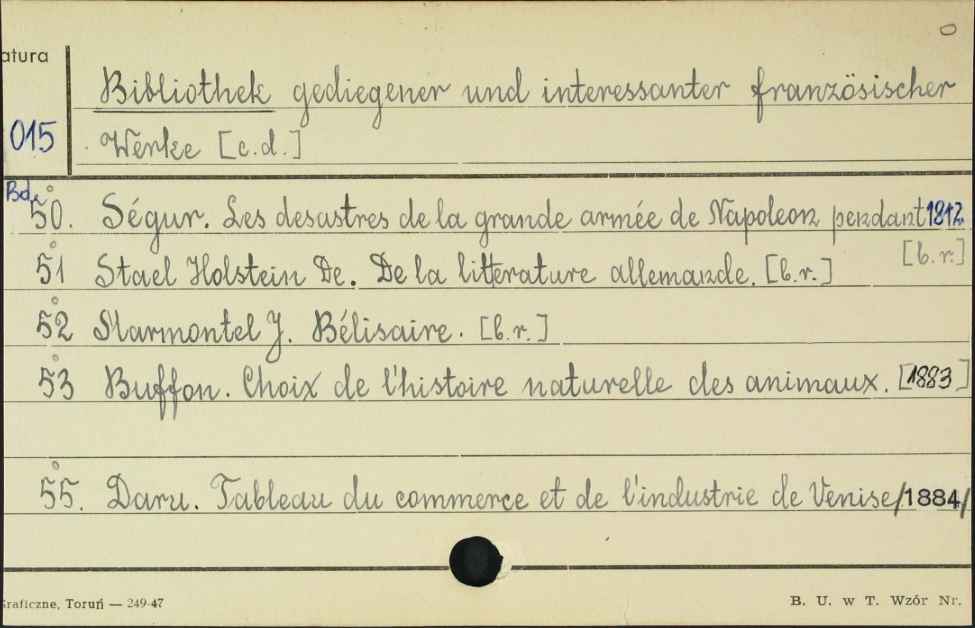 0
atura
Bibliothek gediegener und interessanter französischer
015
Werke [c.d.]
Bd.
50. Ségur. Les desastres de la grande armée de Napoleon pendant 1812
[b.r.]
51 Stael Holstein De. De la litterature allemande. [b.r.]
52 Marmontel J. Bélisaire. [b.r.]
53 Buffon. Choix de l'histoire naturelle des animaux. [1883]
55. Daru. Tableau du commerce et de l'industrie de Venise /1884/
Graficzne, Toruń — 249-47
B. U. w T. Wzór Nr.